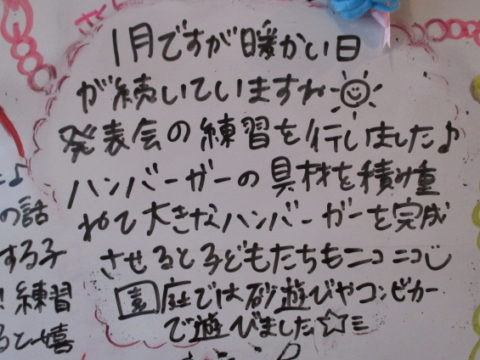 1月ですが暖かい日
が続いていますね
発表会の練習を行しました♪
ハンバーガーの具材を積み重
ねて大きなハンバーガーを完成
させると子どもたちもニコニコ
園庭では砂遊びやコンビカー
で遊びました☆ミ
の話
する子
練習
ると嬉